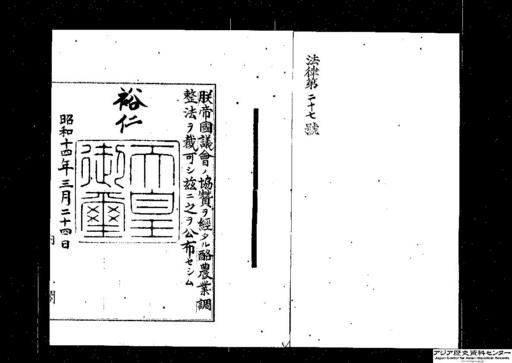 法律第二十七號
朕帝國議會ノ協贊ヲ經タル酪農業調
整法ヲ裁可シ茲ニ之ヲ公布セシム
裕仁
天皇
御璽
昭和十四年三月二十四日
内閣
アジア歴史資料センター
Japan Center for Asian Historical Records